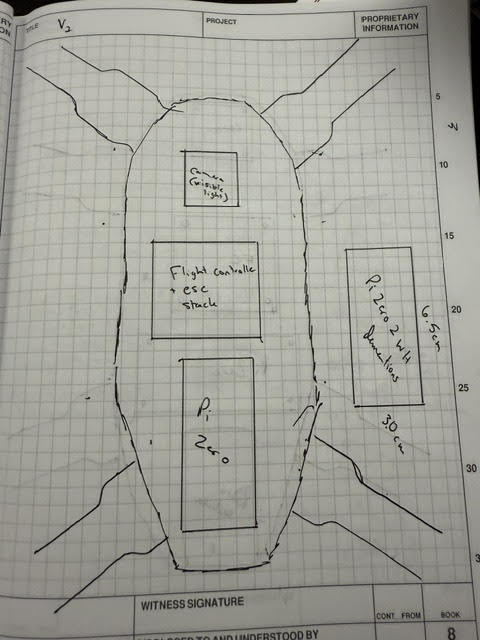 TITLE V2
PROJECT
PROPRIETARY
INFORMATION
5
10
15
20
25
30
Camera
(visible
light)
Flight controlle
+ esc
stack
Pi Zero 2 WH
6.5cm
3.0 cm
Pi
Zero
WITNESS SIGNATURE
CONT. FROM
BOOK
DISCLOSED TO AND UNDERSTOOD BY
8